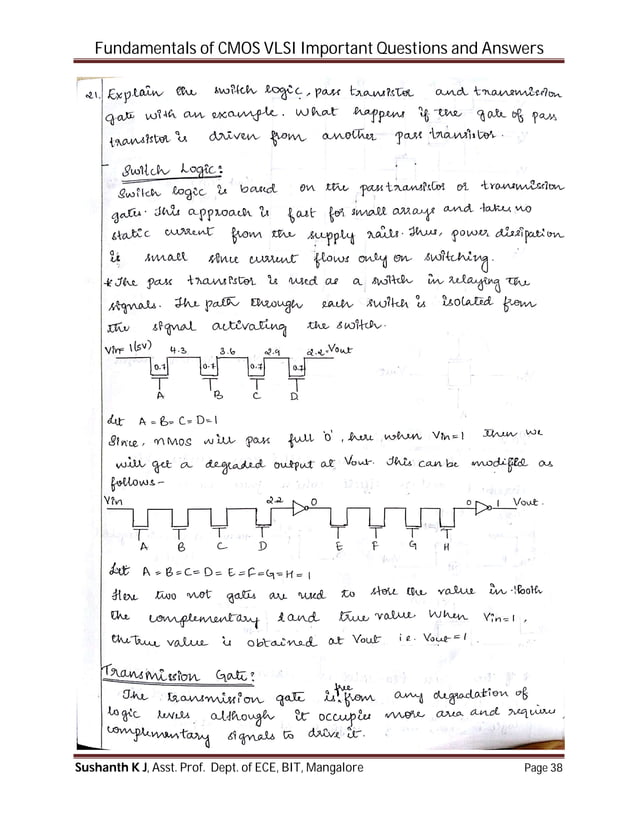 Fundamentals of CMOS VLSI Important Questions and Answers
21. Explain the switch logic, pass transistor and transmission
gate with an example. What happens if the gate of pass
transistor is driven from another pass transistor.
Switch Logic:
Switch logic is based on the pass transistor or transmission
gates. This approach is fast for small arrays and takes no
static current from the supply rails. Thus, power dissipation
is small since current flows only on switching.
* The pass transistor is used as a switch in relaying the
signals. The path through each switch is isolated from
the signal activating the switch.
Vin= 1(5V) 4.3 3.6 2.9 2.2 Vout
0.7 0.7 0.7 0.7
A B C D
Let A = B = C = D = 1
Since, nMOS will pass full '0', here when Vin=1 Then we
will get a degraded output at Vout. This can be modified as
follows -
Vin 2.2 0 0 1 Vout
A B C D E F G H
Let A = B = C = D = E = F = G = H = 1
Here two not gates are used to store the value in both
the complementary and true value when Vin=1,
the true value is obtained at Vout i.e. Vout = 1
Transmission Gate:
The transmission gate is free from any degradation of
logic levels although it occupies more area and require
complementary signals to drive it.
Sushanth K J, Asst. Prof. Dept. of ECE, BIT, Mangalore Page 38